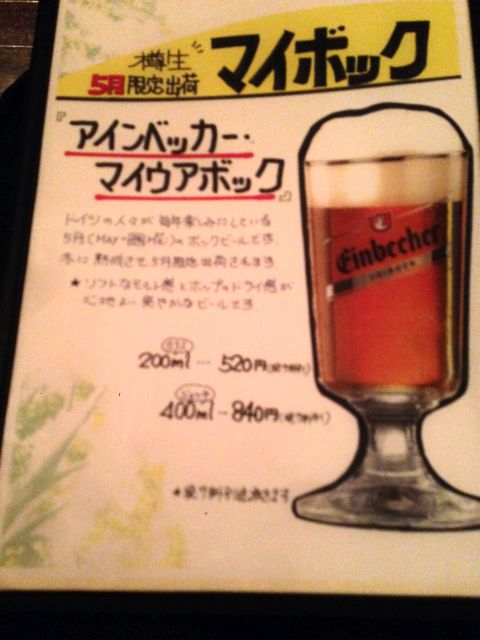 樽生
5月限定出荷
マイボック
『アインベッカー・
マイウアボック』
ドイツの人々が毎年楽しみにしている
5月(MAY=)のボックビールです
冬に熟成させ5月限定出荷されます
★ソフトなモルト感とホップのドライ感が
心地よい爽やかなビールです
グラス
200ml … 520円
400ml … 840円
★
Einbecher